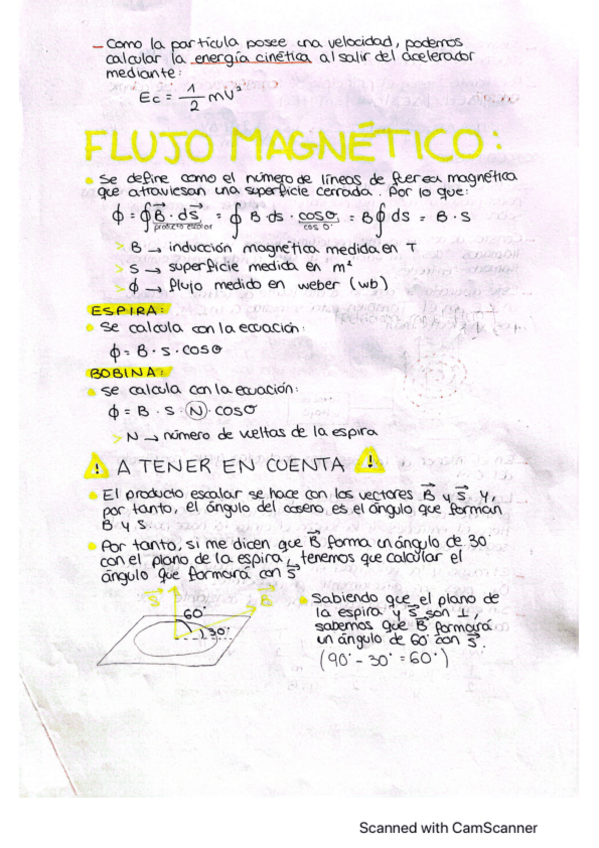 – Como la partícula posee una velocidad, podemos
calcular la energía cinética al salir del acelerador
mediante:
Ec = 1/2 mv²
FLUJO MAGNÉTICO:
• Se define como el número de líneas de fuerza magnética
que atraviesan una superficie cerrada. Por lo que:
ϕ = ∮B⃗ · ds⃗ = ∮ B · ds · cosσ = B∮ ds = B · S
producto escalar cos 0°
> B → inducción magnética medida en T
> S → superficie medida en m²
> ϕ → flujo medido en weber (wb)
ESPIRA:
• Se calcula con la ecuación:
ϕ = B · s · cosσ
BOBINA:
• Se calcula con la ecuación:
ϕ = B · S · N · cosσ
> N → número de vueltas de la espira
⚠ A TENER EN CUENTA ⚠
• El producto escalar se hace con los vectores B⃗ y S⃗ y,
por tanto, el ángulo del coseno es el ángulo que forman
B y S.
• Por tanto, si me dicen que B⃗ forma un ángulo de 30°
con el plano de la espira, tenemos que calcular el
ángulo que formará con S⃗
S⃗ B⃗
60°
30°
• Sabiendo que el plano de
la espira y S⃗ son ⊥,
sabemos que B⃗ formará
un ángulo de 60° con S⃗.
(90° - 30° = 60°)
Scanned with CamScanner